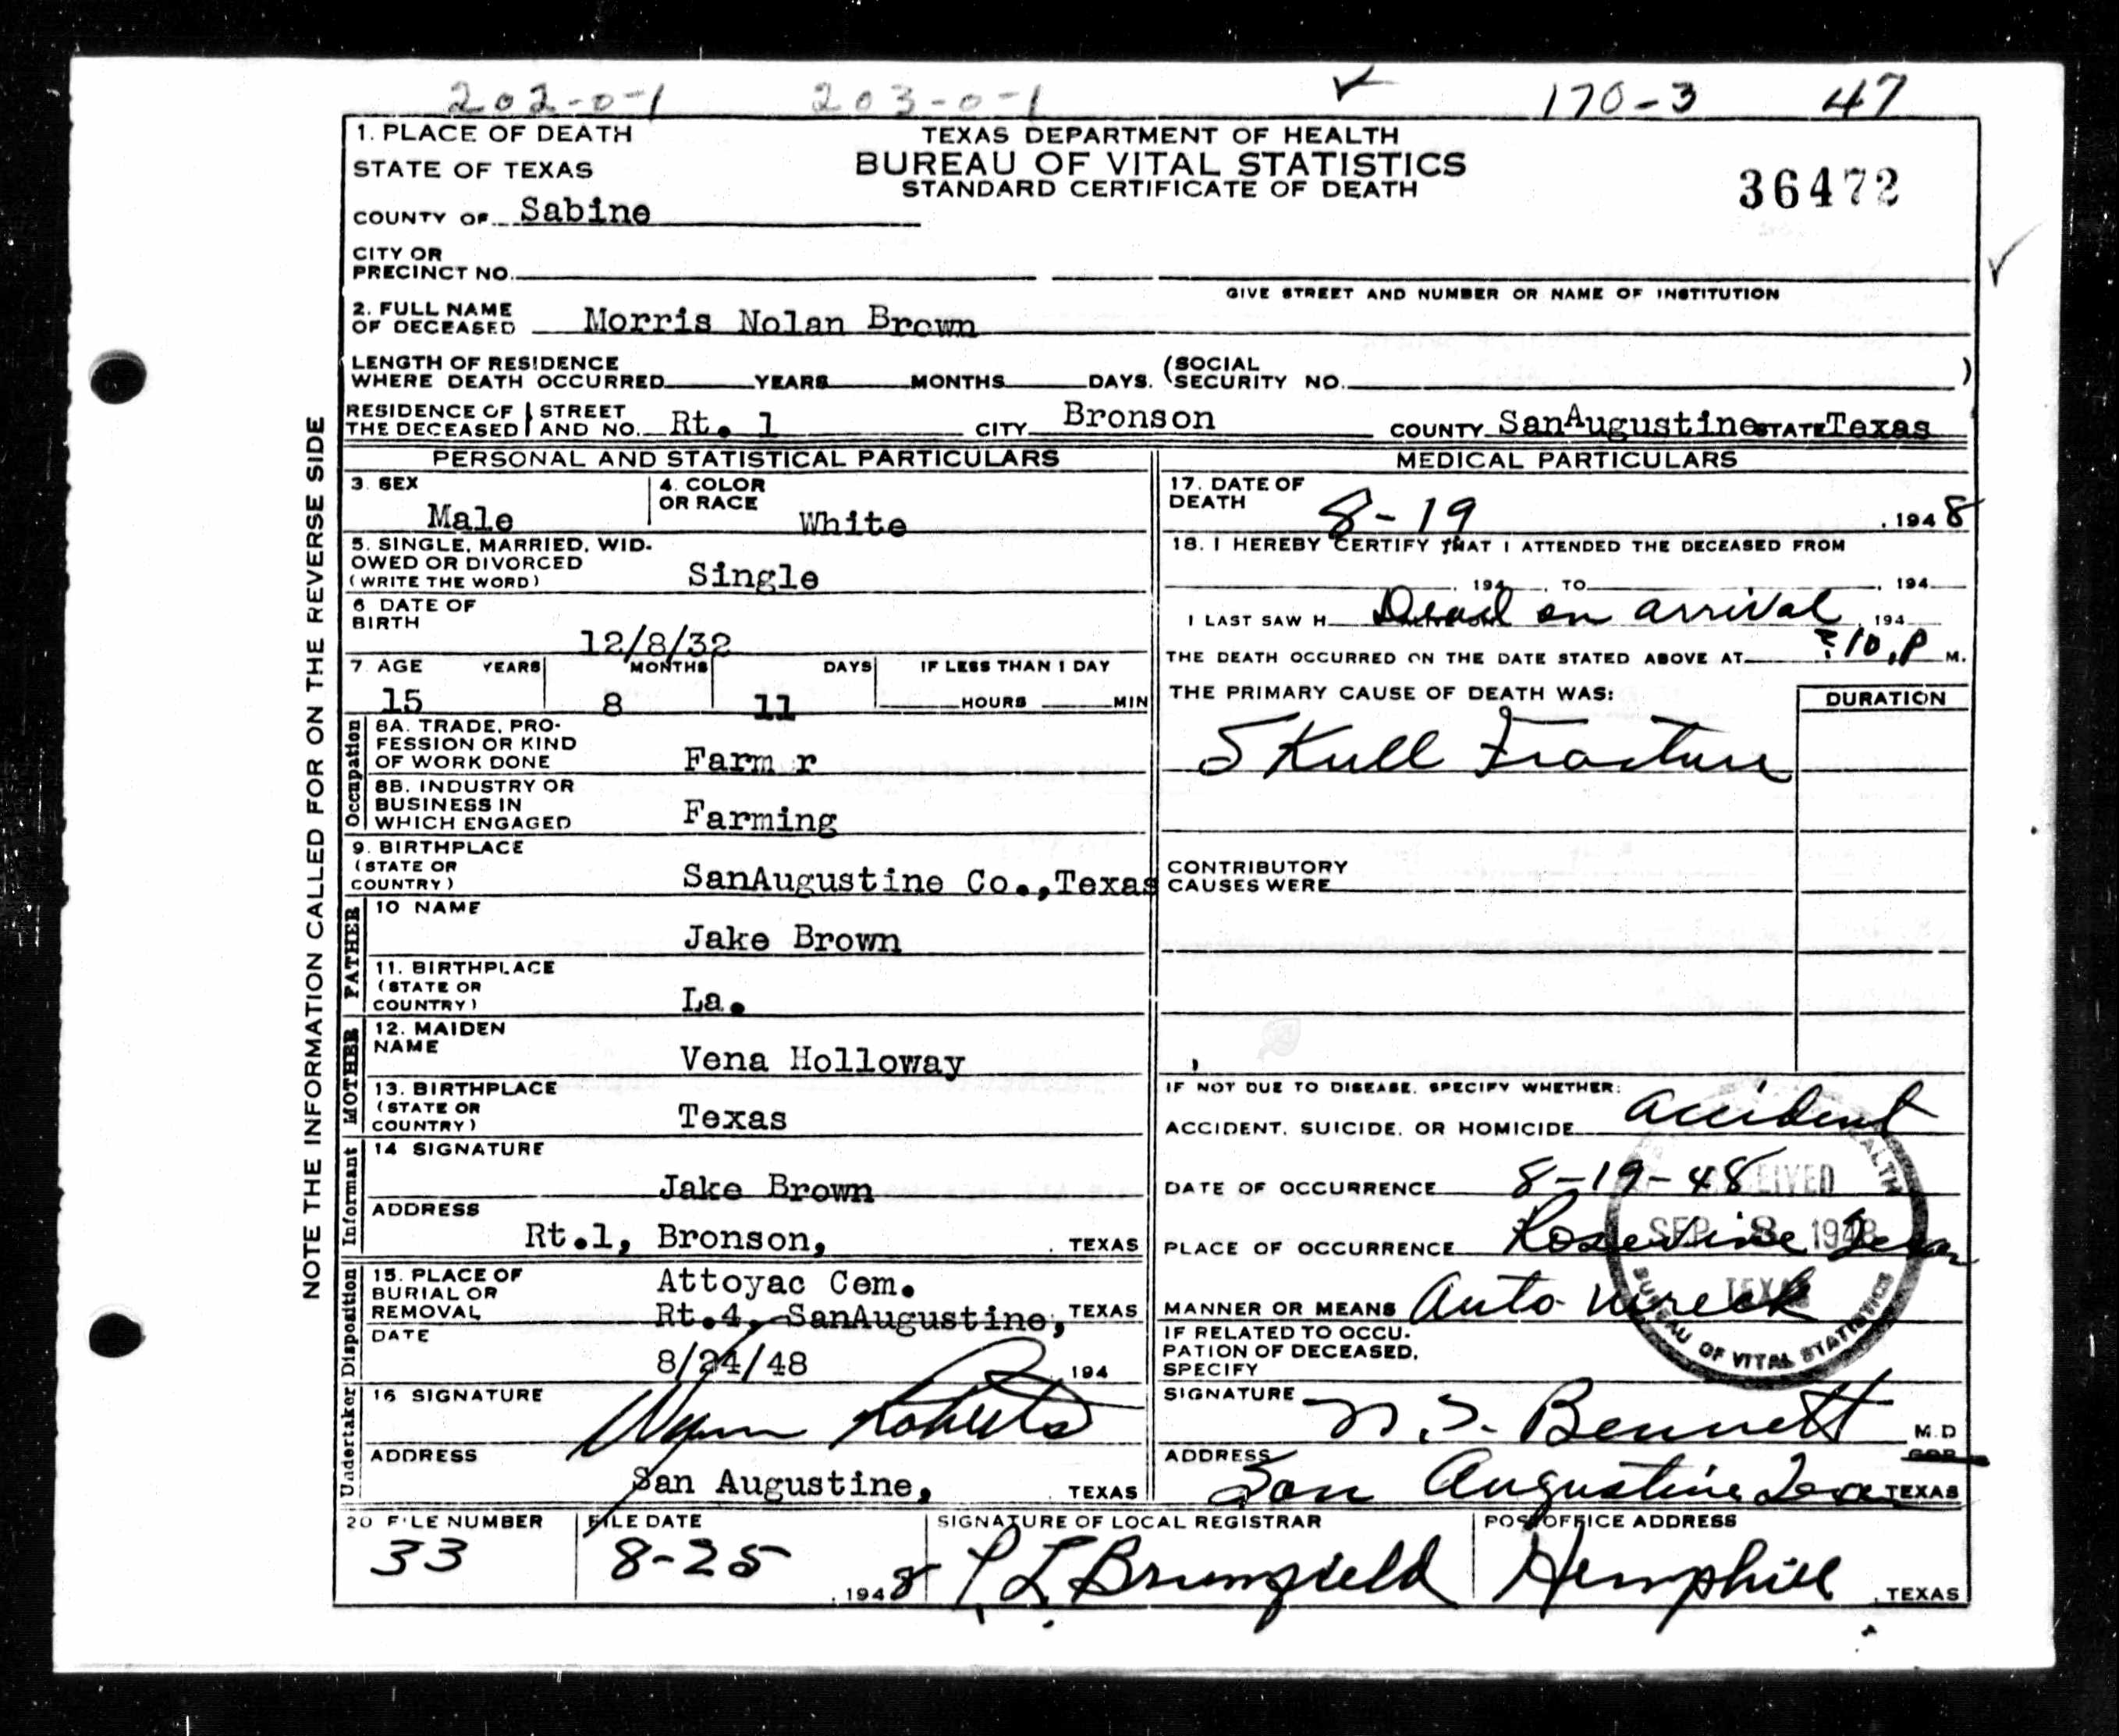 202-0-1 203-0-1 170-3 47
1. PLACE OF DEATH
STATE OF TEXAS
COUNTY OF Sabine
TEXAS DEPARTMENT OF HEALTH
BUREAU OF VITAL STATISTICS
STANDARD CERTIFICATE OF DEATH
36472
CITY OR
PRECINCT NO.
GIVE STREET AND NUMBER OR NAME OF INSTITUTION
2. FULL NAME
OF DECEASED Morris Nolan Brown
LENGTH OF RESIDENCE
WHERE DEATH OCCURRED YEARS MONTHS DAYS.
(SOCIAL
SECURITY NO. )
RESIDENCE OF THE DECEASED
STREET AND NO. Rt. 1 CITY Bronson COUNTY SanAugustine STATE Texas
NOTE THE INFORMATION CALLED FOR ON THE REVERSE SIDE
PERSONAL AND STATISTICAL PARTICULARS
3. SEX
Male
4. COLOR
OR RACE White
5. SINGLE, MARRIED, WID-
OWED OR DIVORCED
(WRITE THE WORD) Single
6 DATE OF
BIRTH
12/8/32
7 AGE YEARS MONTHS DAYS IF LESS THAN 1 DAY
15 8 11 HOURS MIN
Occupation
8A. TRADE, PRO-
FESSION OR KIND
OF WORK DONE Farm r
8B. INDUSTRY OR
BUSINESS IN
WHICH ENGAGED Farming
9. BIRTHPLACE
(STATE OR
COUNTRY) SanAugustine Co.,Texas
FATHER
10 NAME
Jake Brown
11. BIRTHPLACE
(STATE OR
COUNTRY) La.
MOTHER
12. MAIDEN
NAME
Vena Holloway
13. BIRTHPLACE
(STATE OR
COUNTRY) Texas
Informant
14 SIGNATURE
Jake Brown
ADDRESS
Rt.1, Bronson, TEXAS
Undertaker Disposition
15. PLACE OF
BURIAL OR
REMOVAL
Attoyac Cem.
Rt.4, SanAugustine, TEXAS
DATE
8/24/48 194
16 SIGNATURE
Wynn Roberts
ADDRESS
San Augustine, TEXAS
MEDICAL PARTICULARS
17. DATE OF
DEATH 8-19, 1948
18. I HEREBY CERTIFY THAT I ATTENDED THE DECEASED FROM
, 194 , TO , 194
I LAST SAW H Dead on arrival , 194
THE DEATH OCCURRED ON THE DATE STATED ABOVE AT ?10 P M.
THE PRIMARY CAUSE OF DEATH WAS: DURATION
Skull Fracture
CONTRIBUTORY
CAUSES WERE
IF NOT DUE TO DISEASE, SPECIFY WHETHER:
ACCIDENT, SUICIDE, OR HOMICIDE accident
DATE OF OCCURRENCE 8-19-48
PLACE OF OCCURRENCE Rosevine Texas
MANNER OR MEANS Auto wreck
IF RELATED TO OCCU-
PATION OF DECEASED,
SPECIFY
RECEIVED
SEP 8 1948
TEXAS
BUREAU OF VITAL STATISTICS
SIGNATURE N. S. Bennett M.D
ADDRESS
San Augustine Texas TEXAS
20 FILE NUMBER
33
FILE DATE
8-25, 1948
SIGNATURE OF LOCAL REGISTRAR
P L Brumfield
POST OFFICE ADDRESS
Hemphill, TEXAS